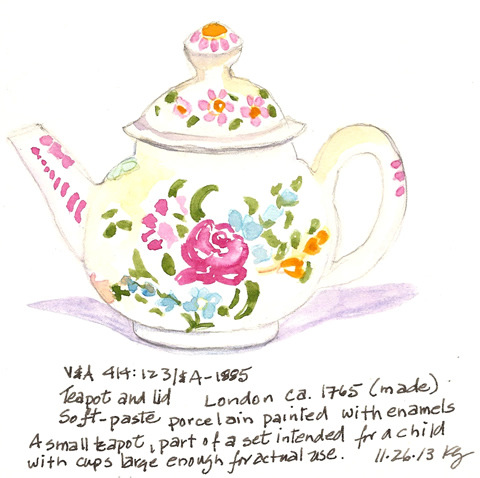 V&A 414:123/&A-1885
Teapot and lid London ca. 1765 (made).
Soft-paste porcelain painted with enamels
A small teapot, part of a set intended for a child
with cups large enough for actual use. 11.26.13